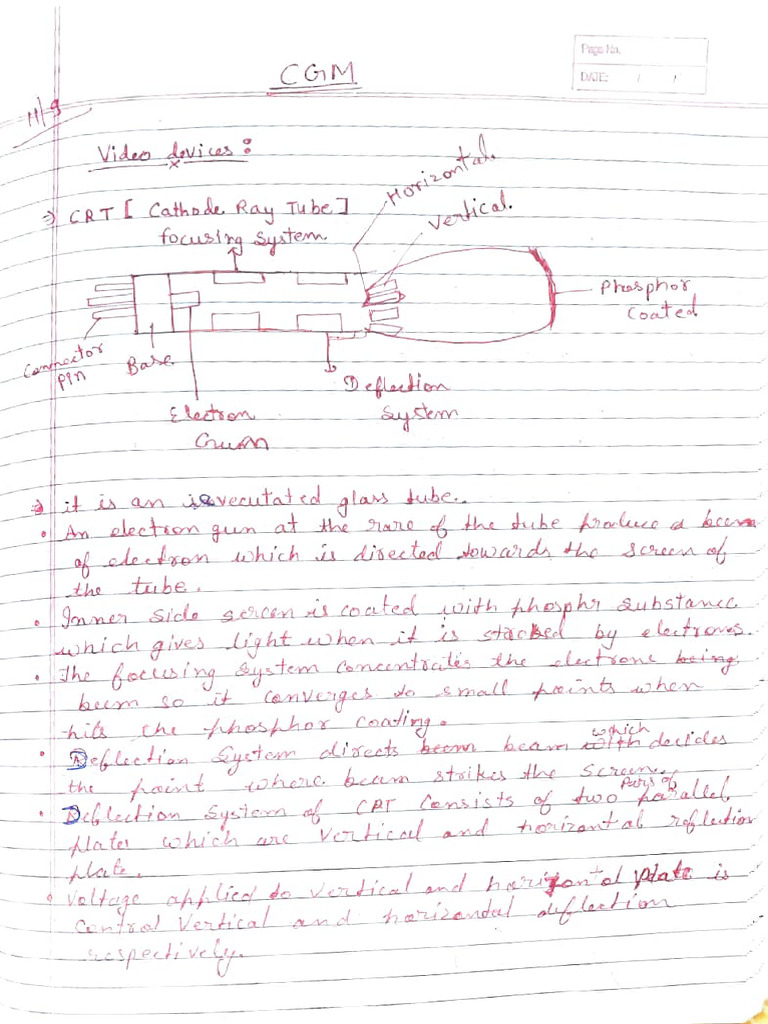 Page No.
DATE: / /
CGM
11/9
Video devices:
⇒ CRT [ Cathode Ray Tube ]
Horizontal.
Vertical.
focusing System
Phosphor
Coated
Connector
Pin
Base
Deflection
System
Electron
Guun
⇒ it is an evecutated glass tube.
• An electron gun at the rare of the tube produce a beem
of electron which is directed towards the screen of
the tube.
• Inner side screen is coated with phosphr substance
which gives light when it is stacked by electrones.
• The focusing system concentrates the electrone being
beem so it converges to small points when
hits the phosphor coating.
• Deflection System directs beem beam with which decides
the point where beam strikes the screen.
• Deflection System of CRT consists of two pairs of parallel
plates which are vertical and horizontal reflection
plate.
• Voltage applied to vertical and horizontal plate is
control vertical and horizondal deflection
respectively.